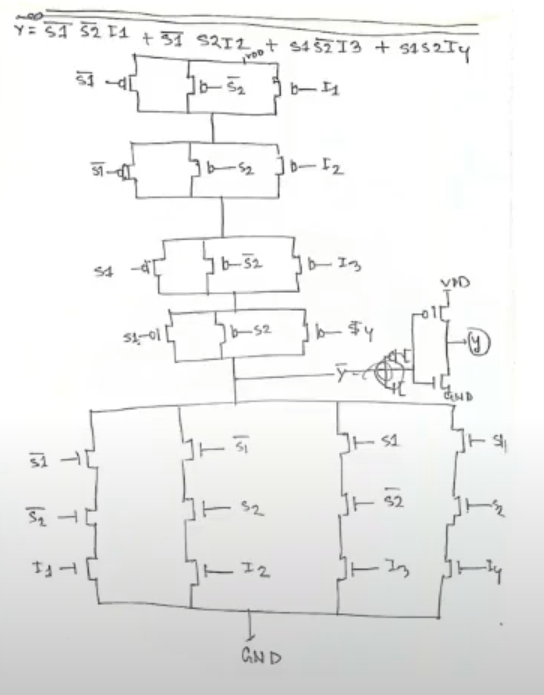 VDD
Y = S̅1̅ S̅2̅ I1 + S̅1̅ S2I2 + S1S̅2̅I3 + S1S2I4
VDD
S̅1̅ S̅2̅ I1
S̅1̅ S2 I2
S1 S̅2̅ I3
VDD
S1 S2 I4
Y̅ Y
GND
S̅1̅ S̅1̅ S1 S1
S̅2̅ S2 S̅2̅ S2
I1 I2 I3 I4
GND